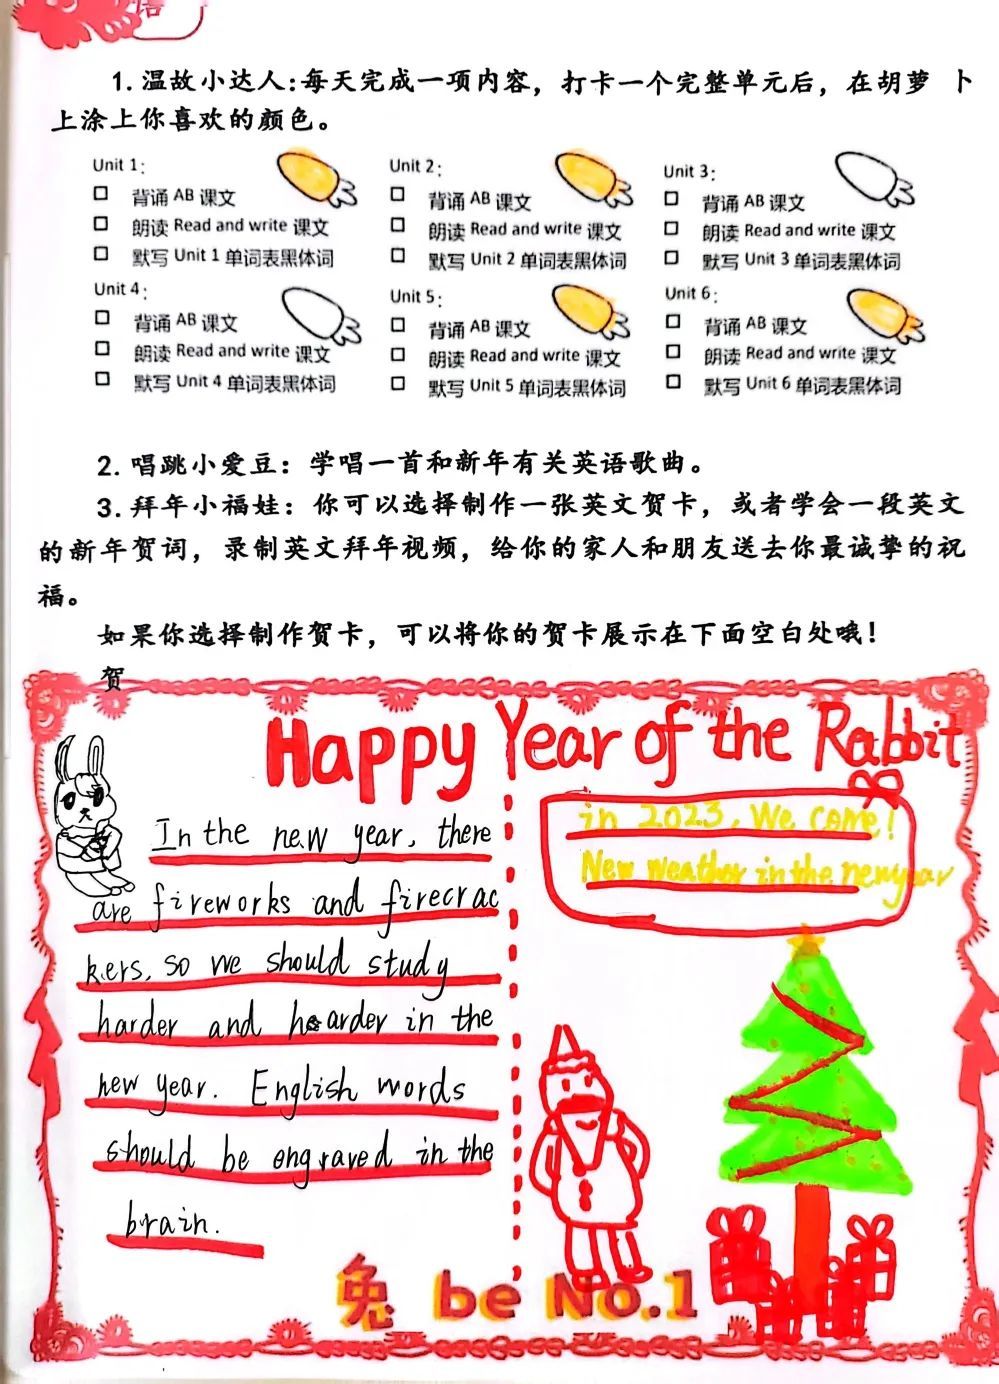 语
1.温故小达人:每天完成一项内容，打卡一个完整单元后，在胡萝 卜
上涂上你喜欢的颜色。
Unit 1:
背诵 AB 课文
朗读 Read and write 课文
默写 Unit 1 单词表黑体词
Unit 2:
背诵 AB 课文
朗读 Read and write 课文
默写 Unit 2 单词表黑体词
Unit 3:
背诵 AB 课文
朗读 Read and write 课文
默写 Unit 3 单词表黑体词
Unit 4:
背诵 AB 课文
朗读 Read and write 课文
默写 Unit 4 单词表黑体词
Unit 5:
背诵 AB 课文
朗读 Read and write 课文
默写 Unit 5 单词表黑体词
Unit 6:
背诵 AB 课文
朗读 Read and write 课文
默写 Unit 6 单词表黑体词
2.唱跳小爱豆：学唱一首和新年有关英语歌曲。
3.拜年小福娃：你可以选择制作一张英文贺卡，或者学会一段英文
的新年贺词，录制英文拜年视频，给你的家人和朋友送去你最诚挚的祝
福。
如果你选择制作贺卡，可以将你的贺卡展示在下面空白处哦！
贺
Happy Year of the Rabbit
In the new year, there
are fireworks and firecrac
kers, so we should study
harder and harder in the
new year. English words
should be engraved in the
brain.
in 2023, We come!
New weather in the newyear
兔 be No.1